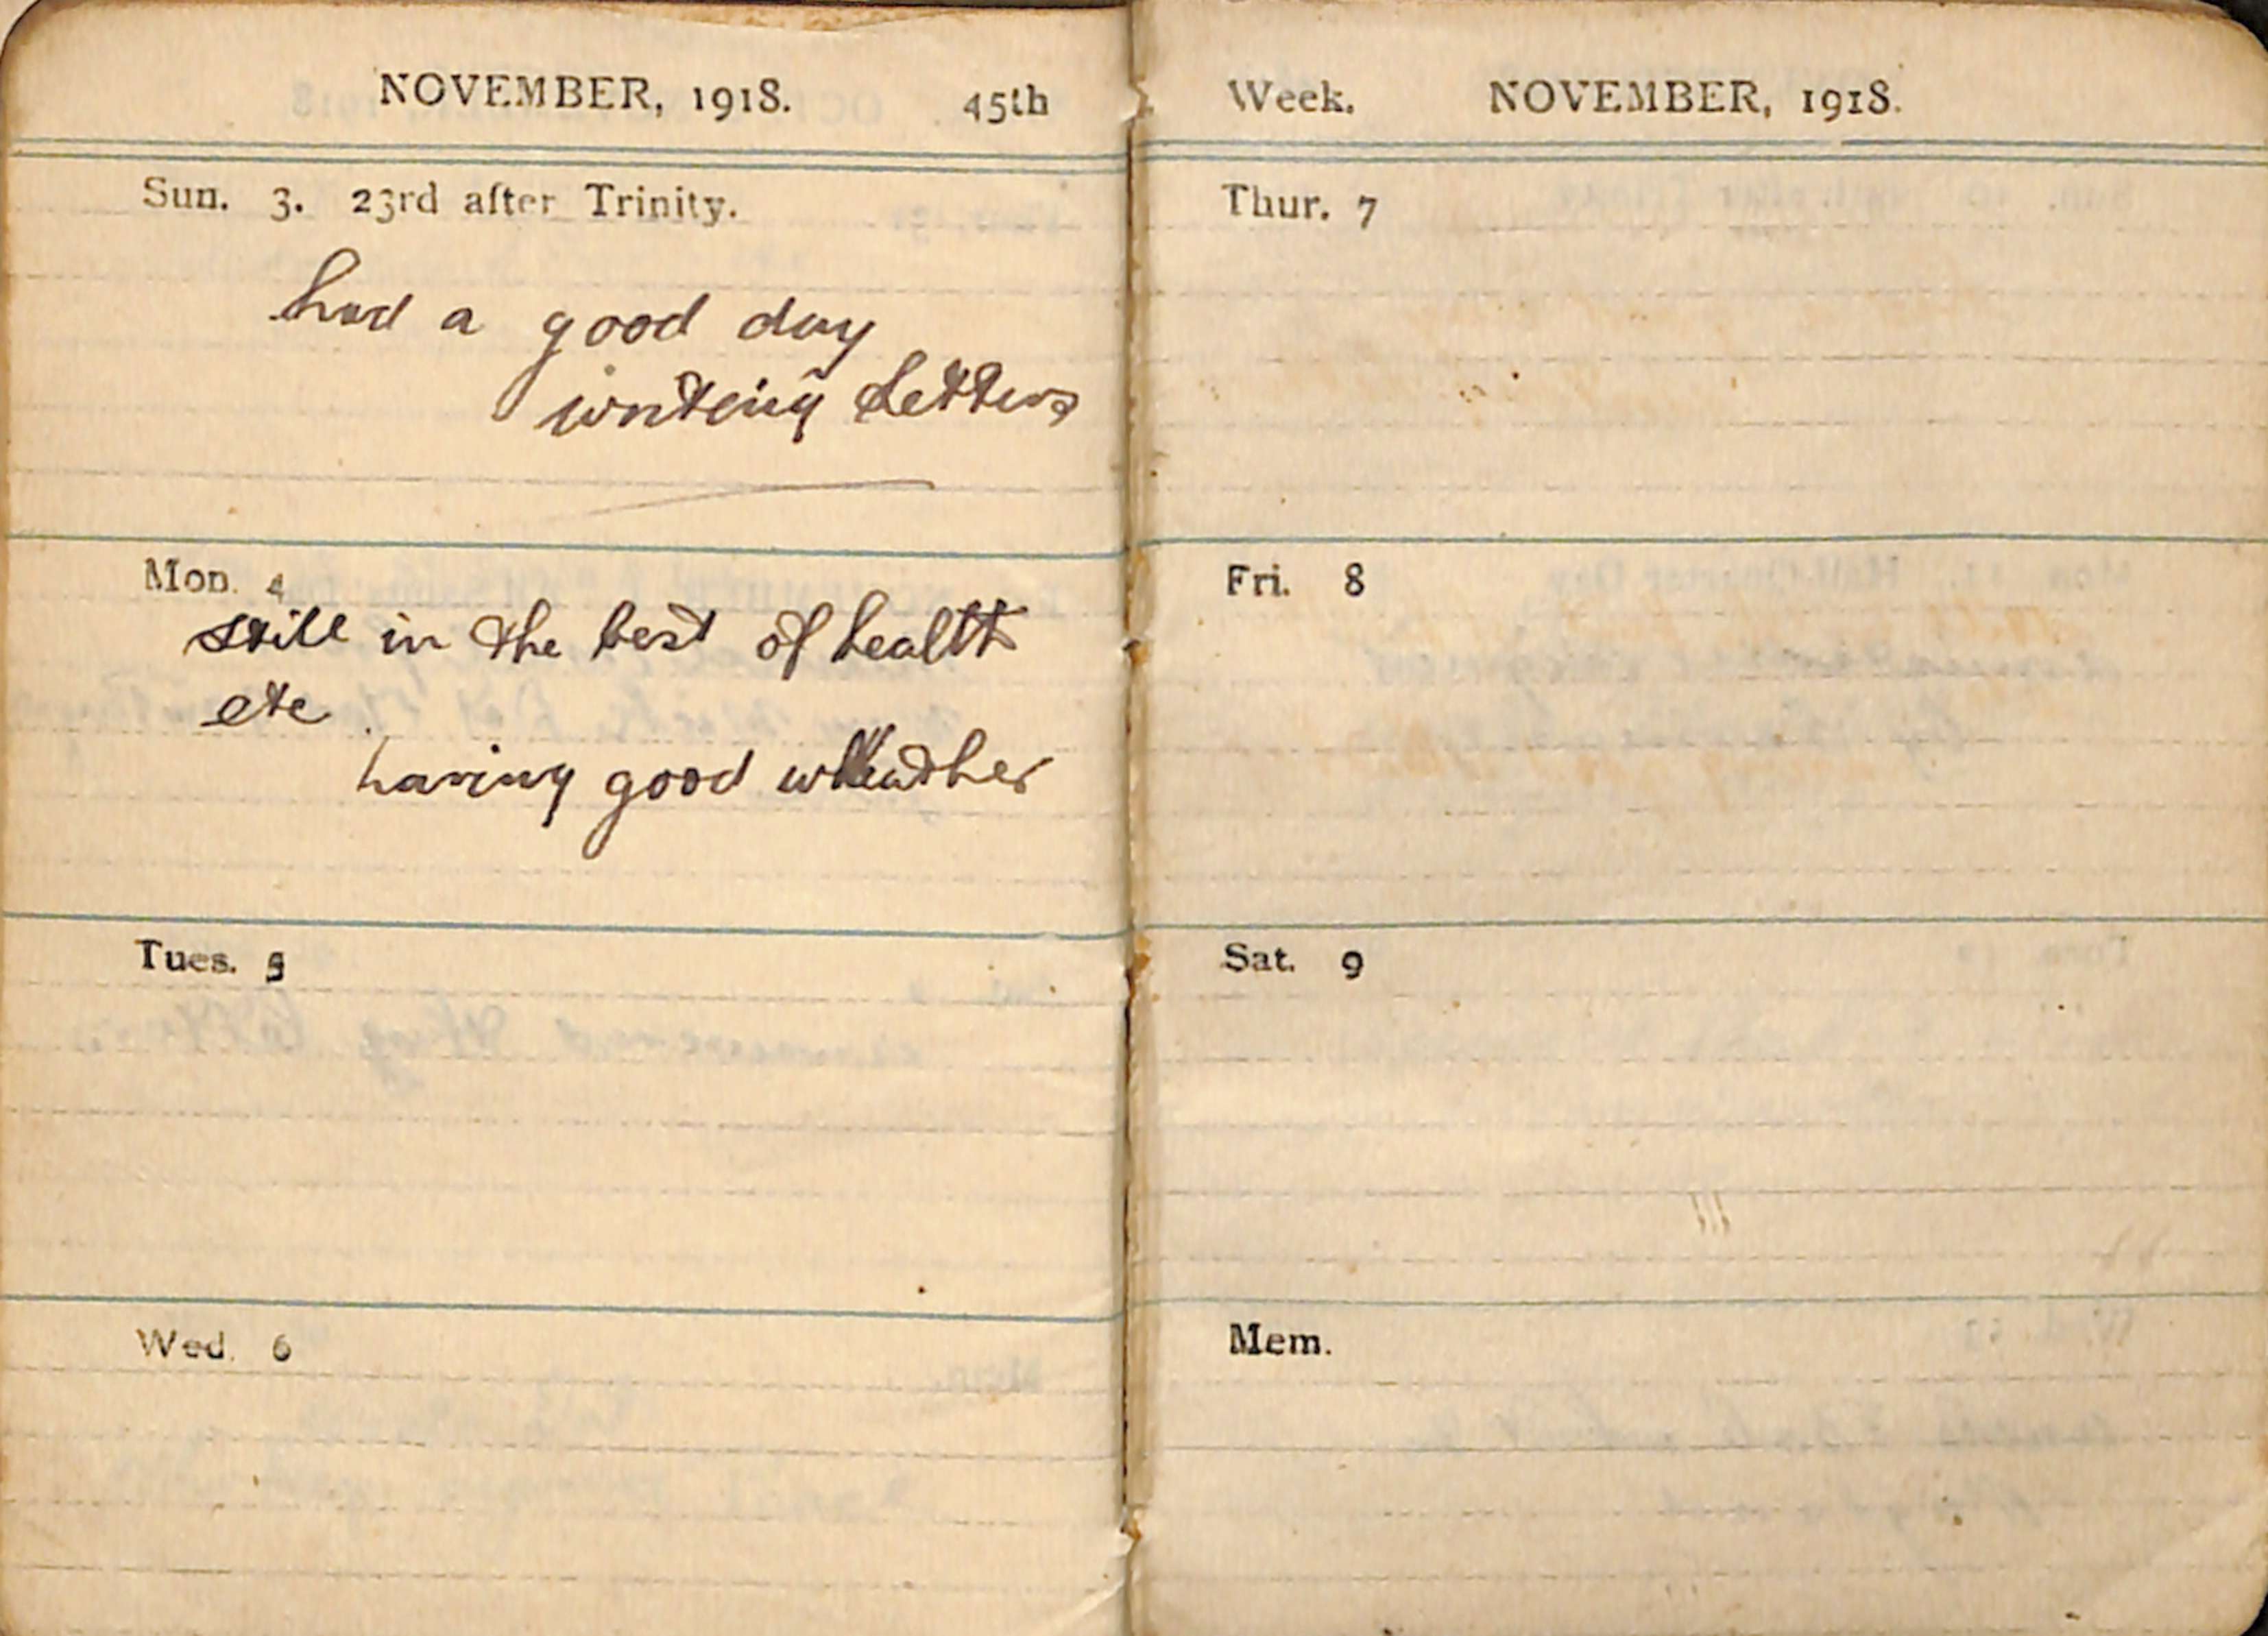 NOVEMBER, 1918. 45th
Sun. 3. 23rd after Trinity.
had a good day
writing letters
Mon. 4
still in the best of health
etc
having good wheather
Tues. 5
Wed. 6
Week. NOVEMBER, 1918.
Thur. 7
Fri. 8
Sat. 9
Mem.